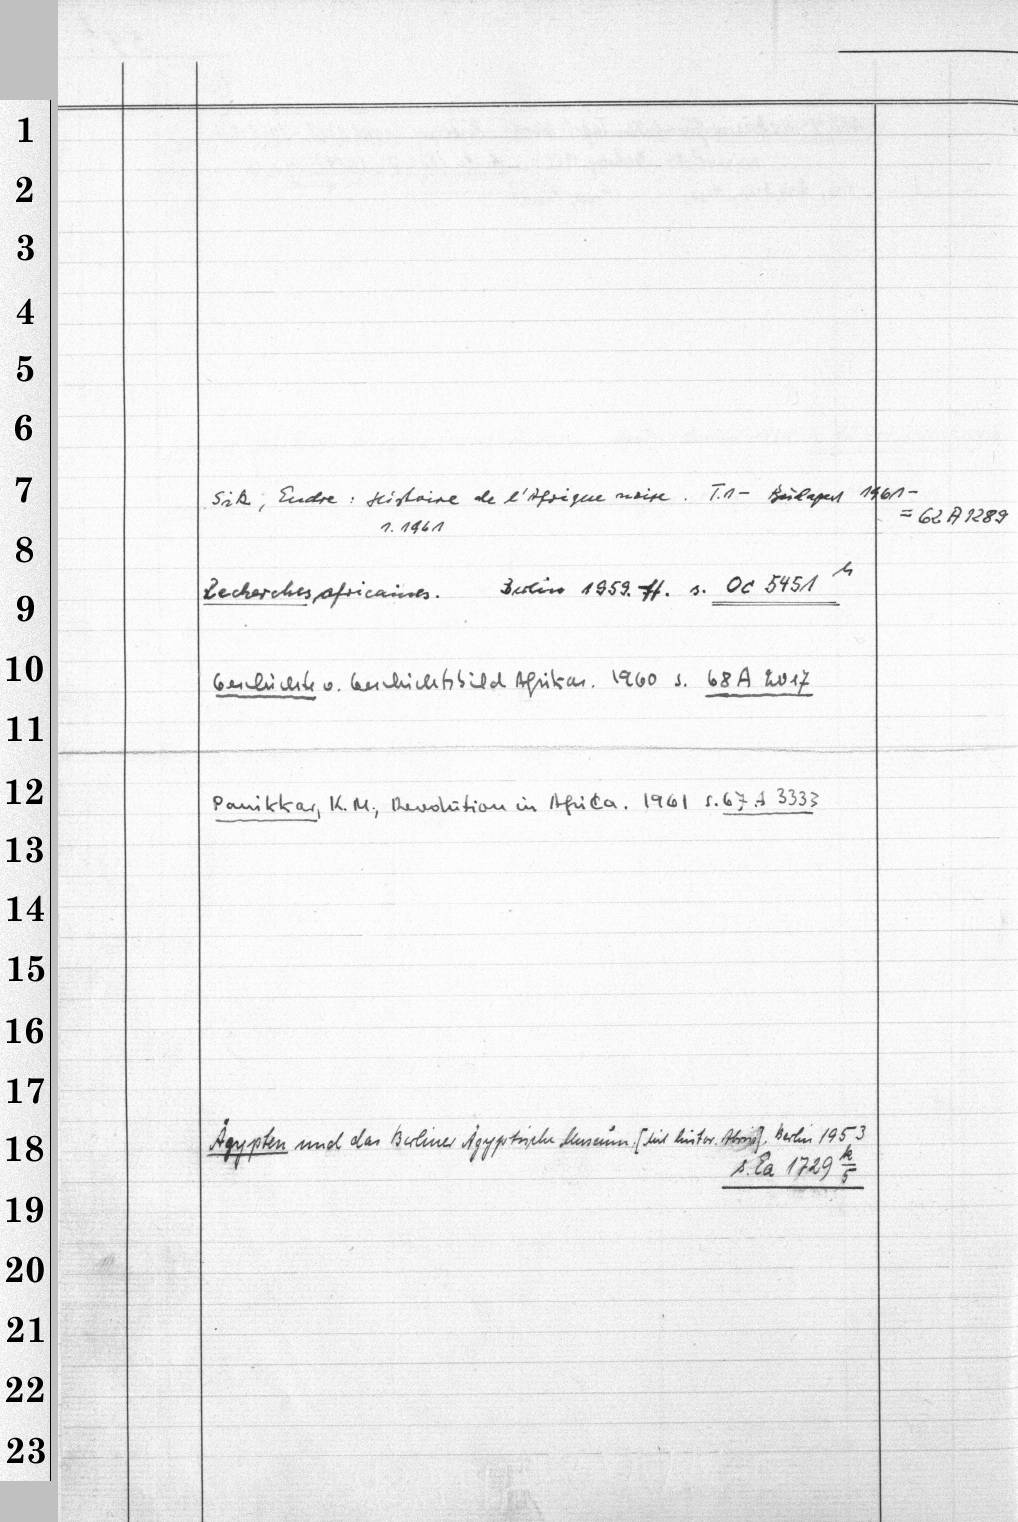 1
2
3
4
5
6
7
Sik, Endre : Histoire de l'Afrique noire. T.1- Budapest 1961-
= 62 A 1289
1. 1961
8
Recherches africaines. Berlin 1959 ff. s. Oc 5451 h
9
10
Geschichte u. Geschichtsbild Afrikas. 1960 s. 68 A 2017
11
12
Panikkar, K. M., Revolution in Africa. 1961 s. 67 A 3333
13
14
15
16
17
18
Ägypten und das Berliner Ägyptische Museum. [ histor. ]. Berlin 1953
s. Ea 1729 k/5
19
20
21
22
23